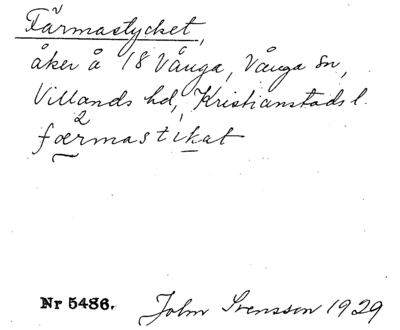 Färmastycket,
åker å 18 Vånga, Vånga sn,
Villands hd, Kristianstads l.
2
færmastikat
Nr 5486. John Svensson 1929